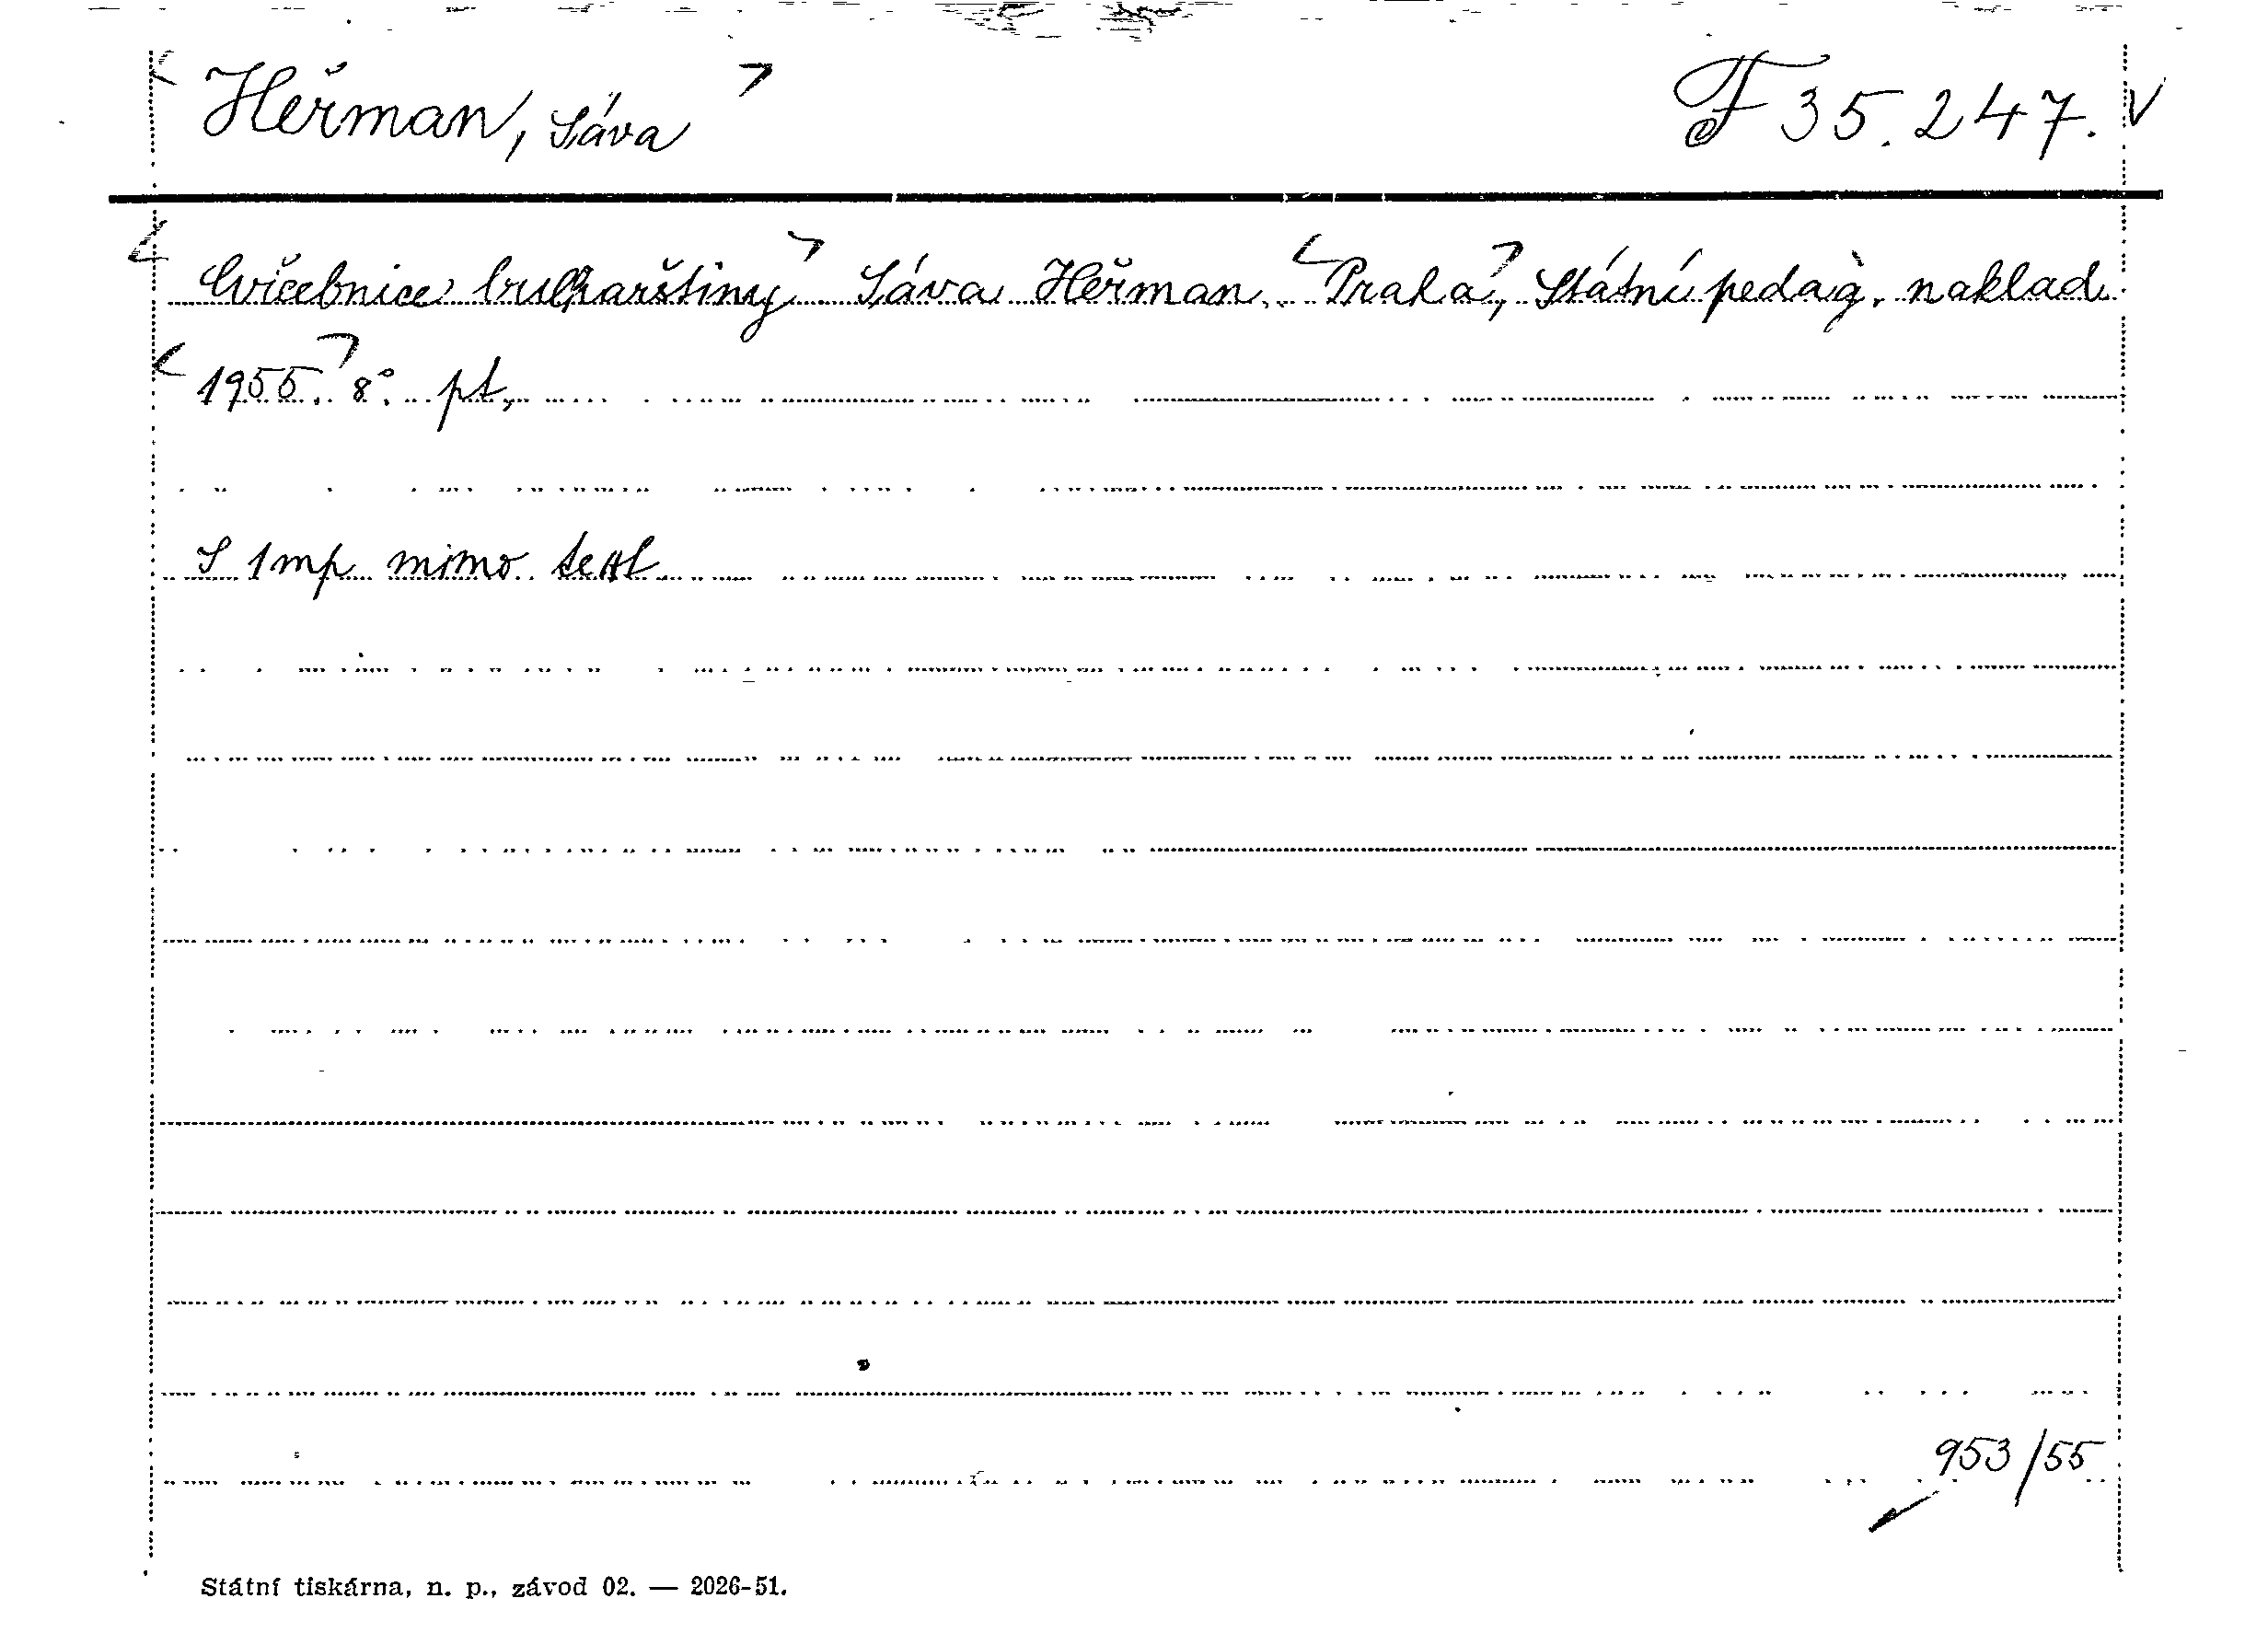 Heřman, Sáva
F 35.247.
Cvičebnice bulharštiny. Sáva Heřman. Praha, Státní pedag. naklad.
1955. 8°. pt,
S 1 mp mimo text
953/55
Státní tiskárna, n. p., závod 02. — 2026-51.